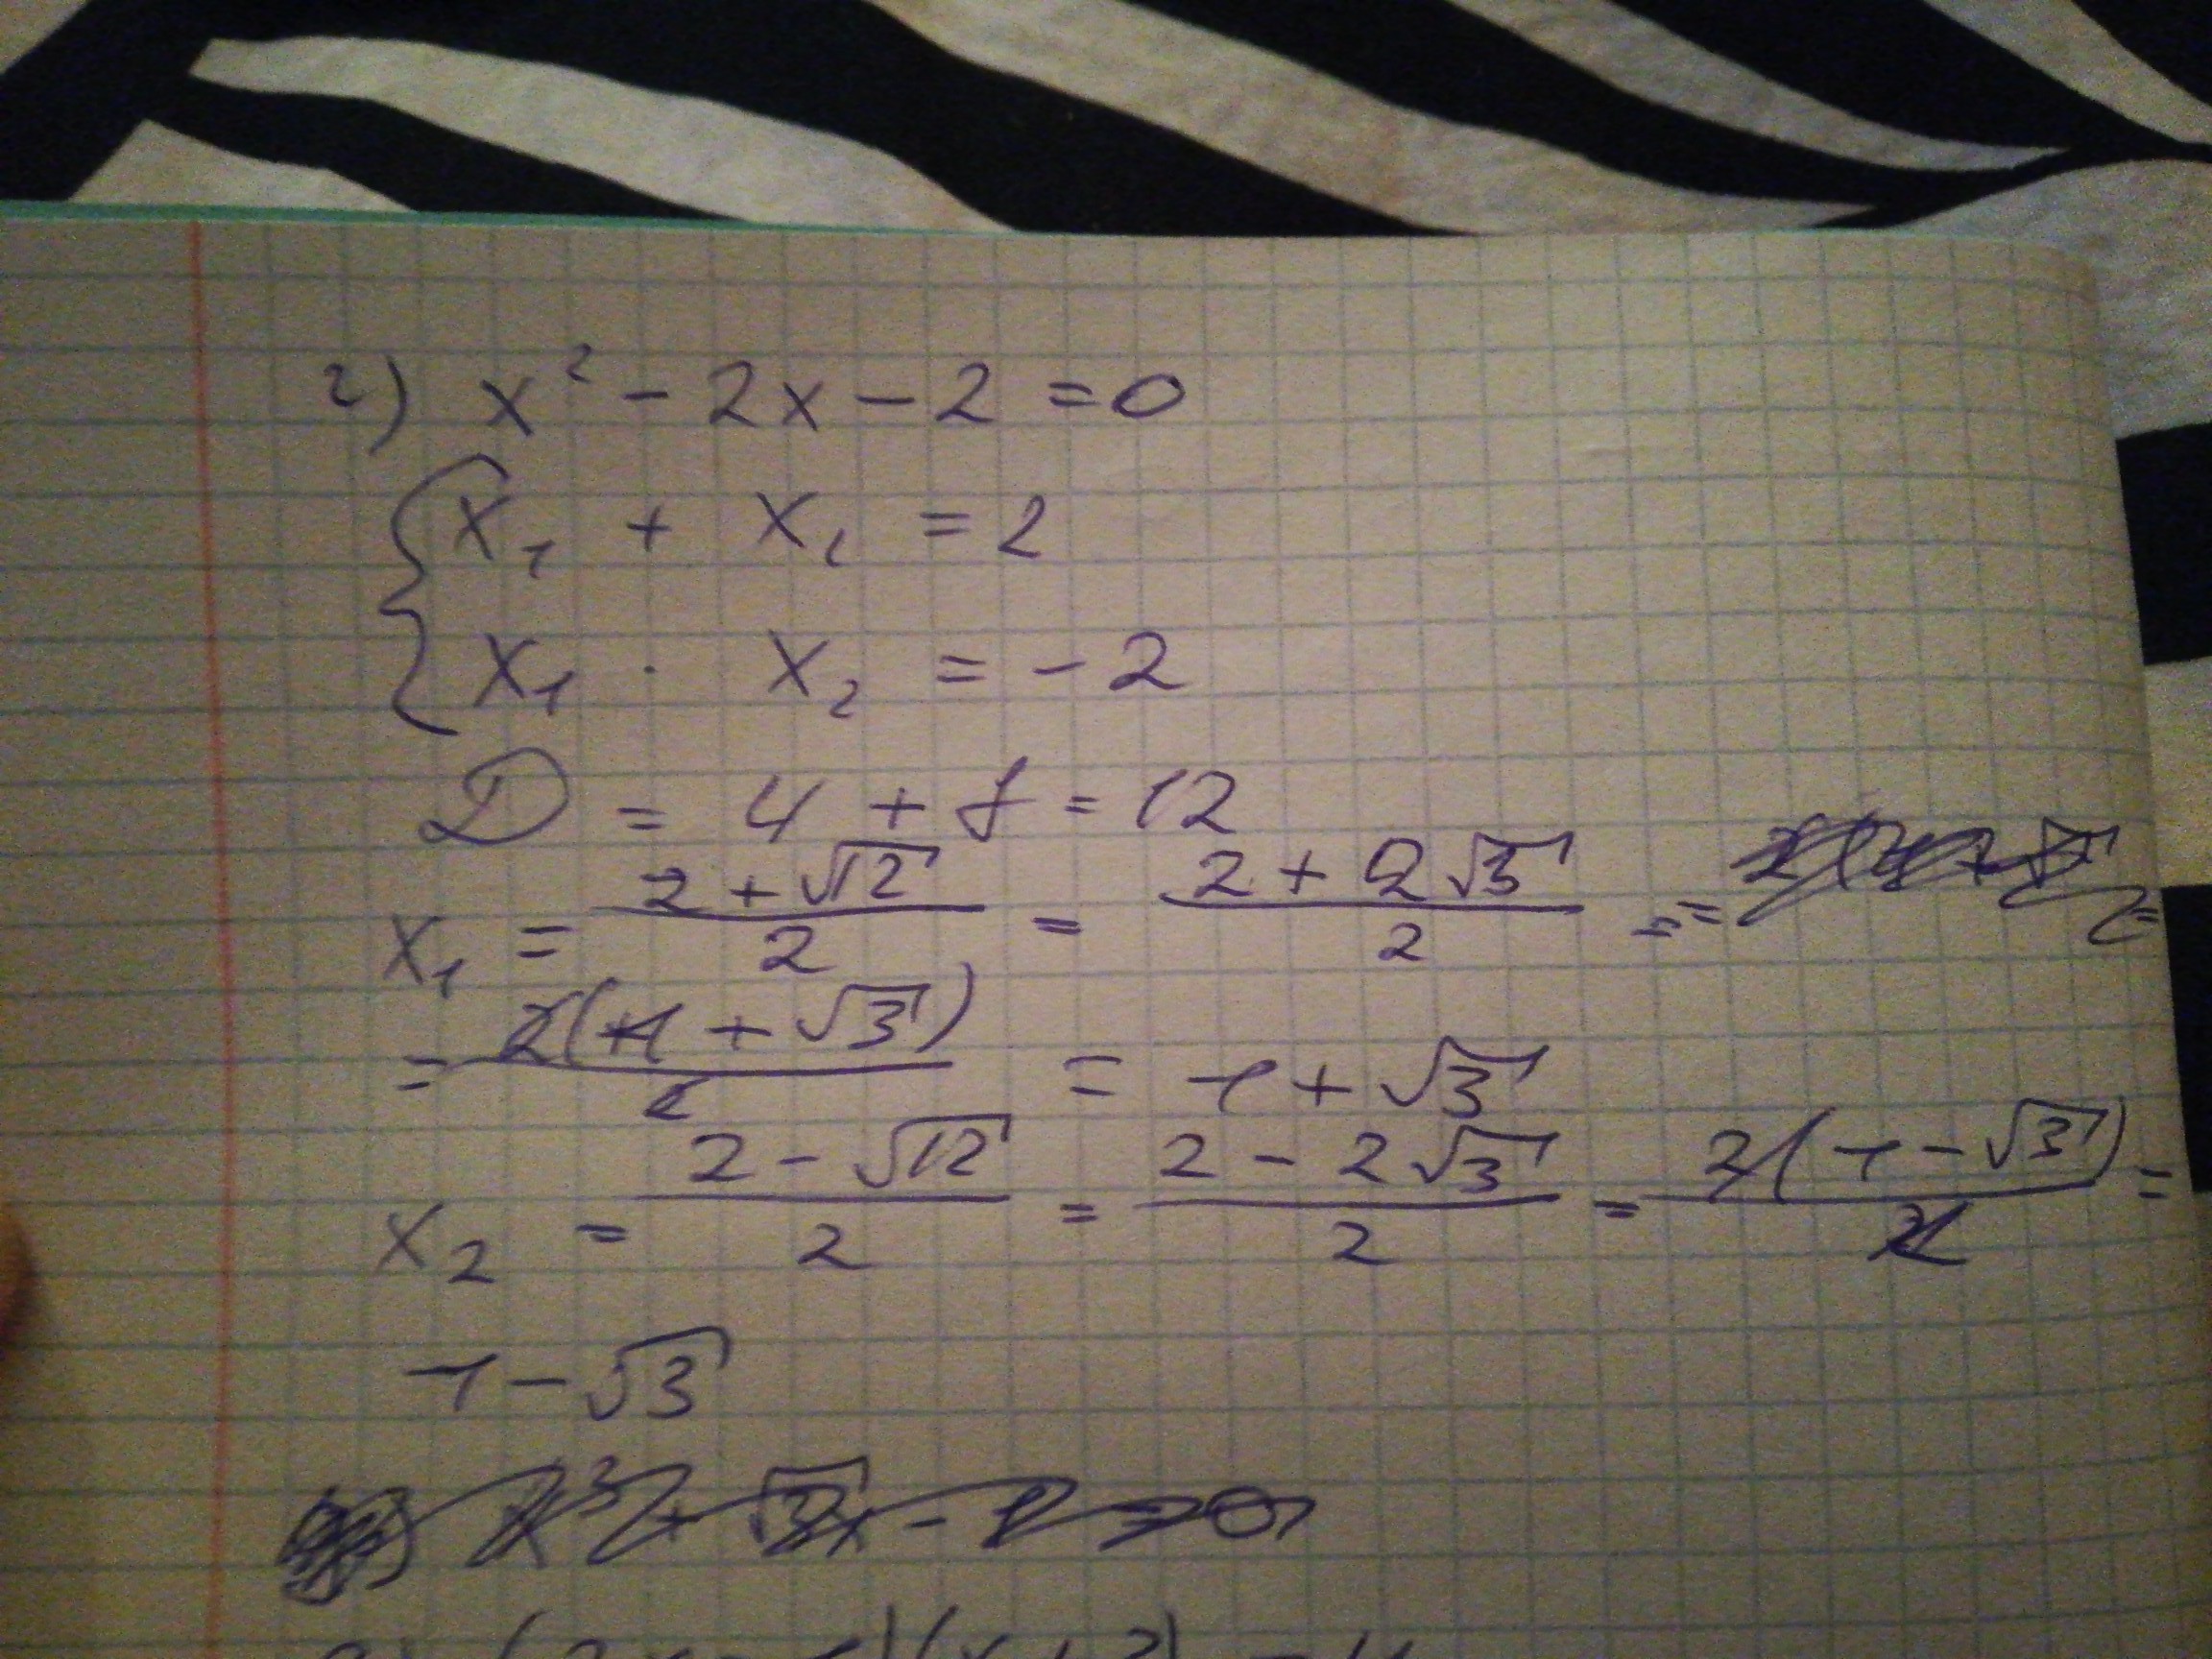 2) x² - 2x - 2 = 0
{ x₁ + x₂ = 2
x₁ · x₂ = -2
D = 4 + 8 = 12
x₁ = (2 + √12)/2 = (2 + 2√3)/2 = =
= 2(1 + √3)/2 = 1 + √3
x₂ = (2 - √12)/2 = (2 - 2√3)/2 = 2(1 - √3)/2 =
1 - √3